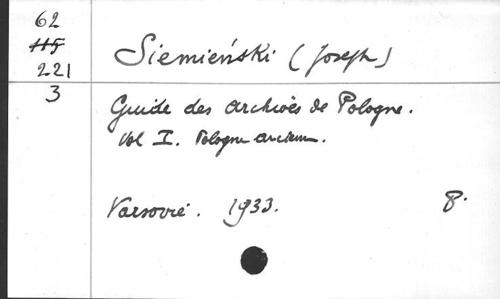 62
115
221
3
Siemieński (Joseph)
Guide des archives de Pologne.
Vol I. Pologne ancienne.
Varsovie. 1933. 8.